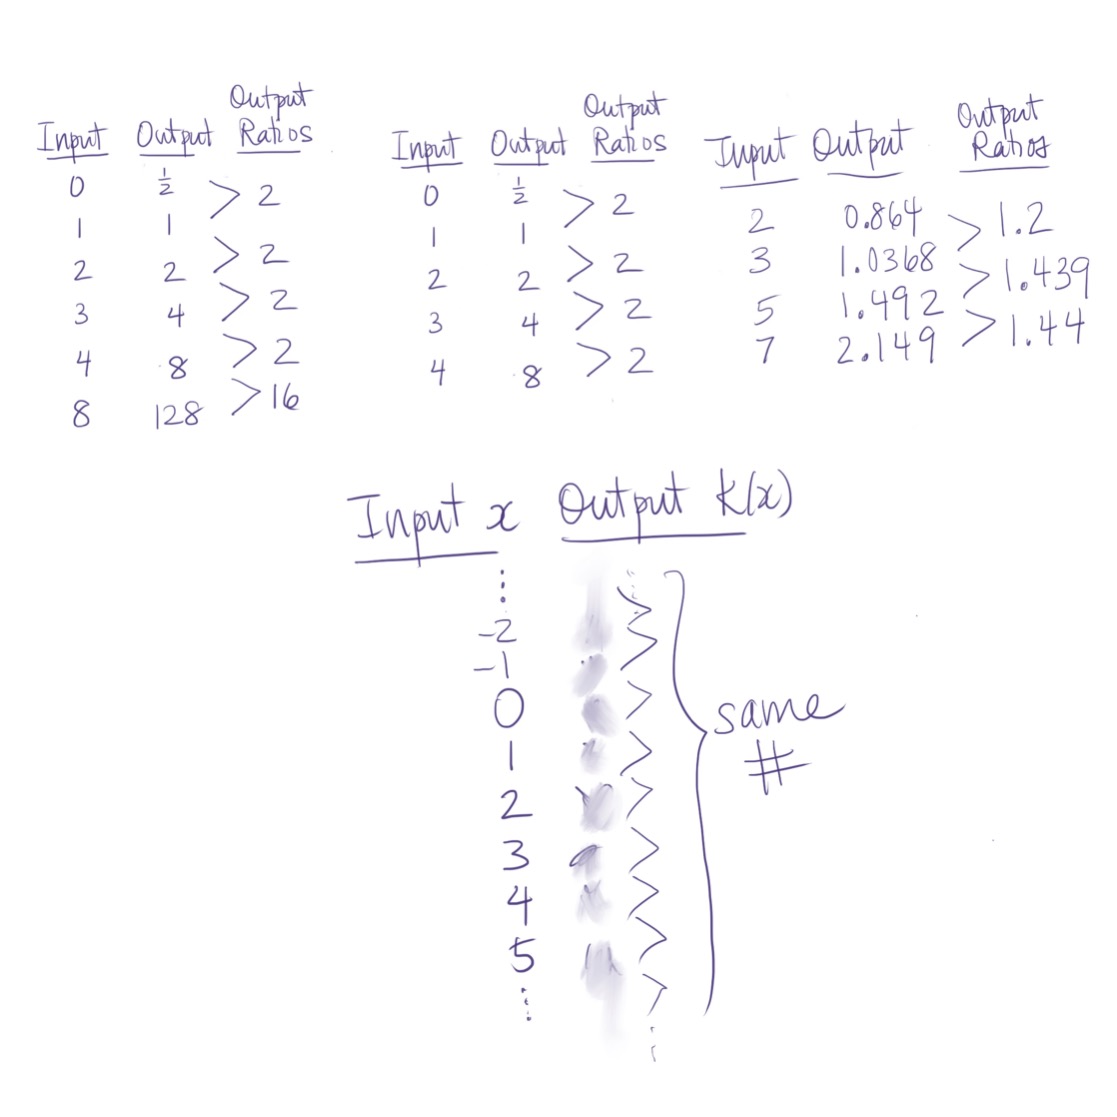 Input Output Output Ratios
0 ½ > 2
1 1 > 2
2 2 > 2
3 4 > 2
4 8 > 16
8 128
Input Output Output Ratios
0 ½ > 2
1 1 > 2
2 2 > 2
3 4 > 2
4 8
Input Output Output Ratios
2 0.864 > 1.2
3 1.0368 > 1.439
5 1.492 > 1.44
7 2.149
Input x Output k(x)
⋮
-2 >
-1 >
0 >
1 >
2 >
3 >
4 >
5 >
⋮
same
#